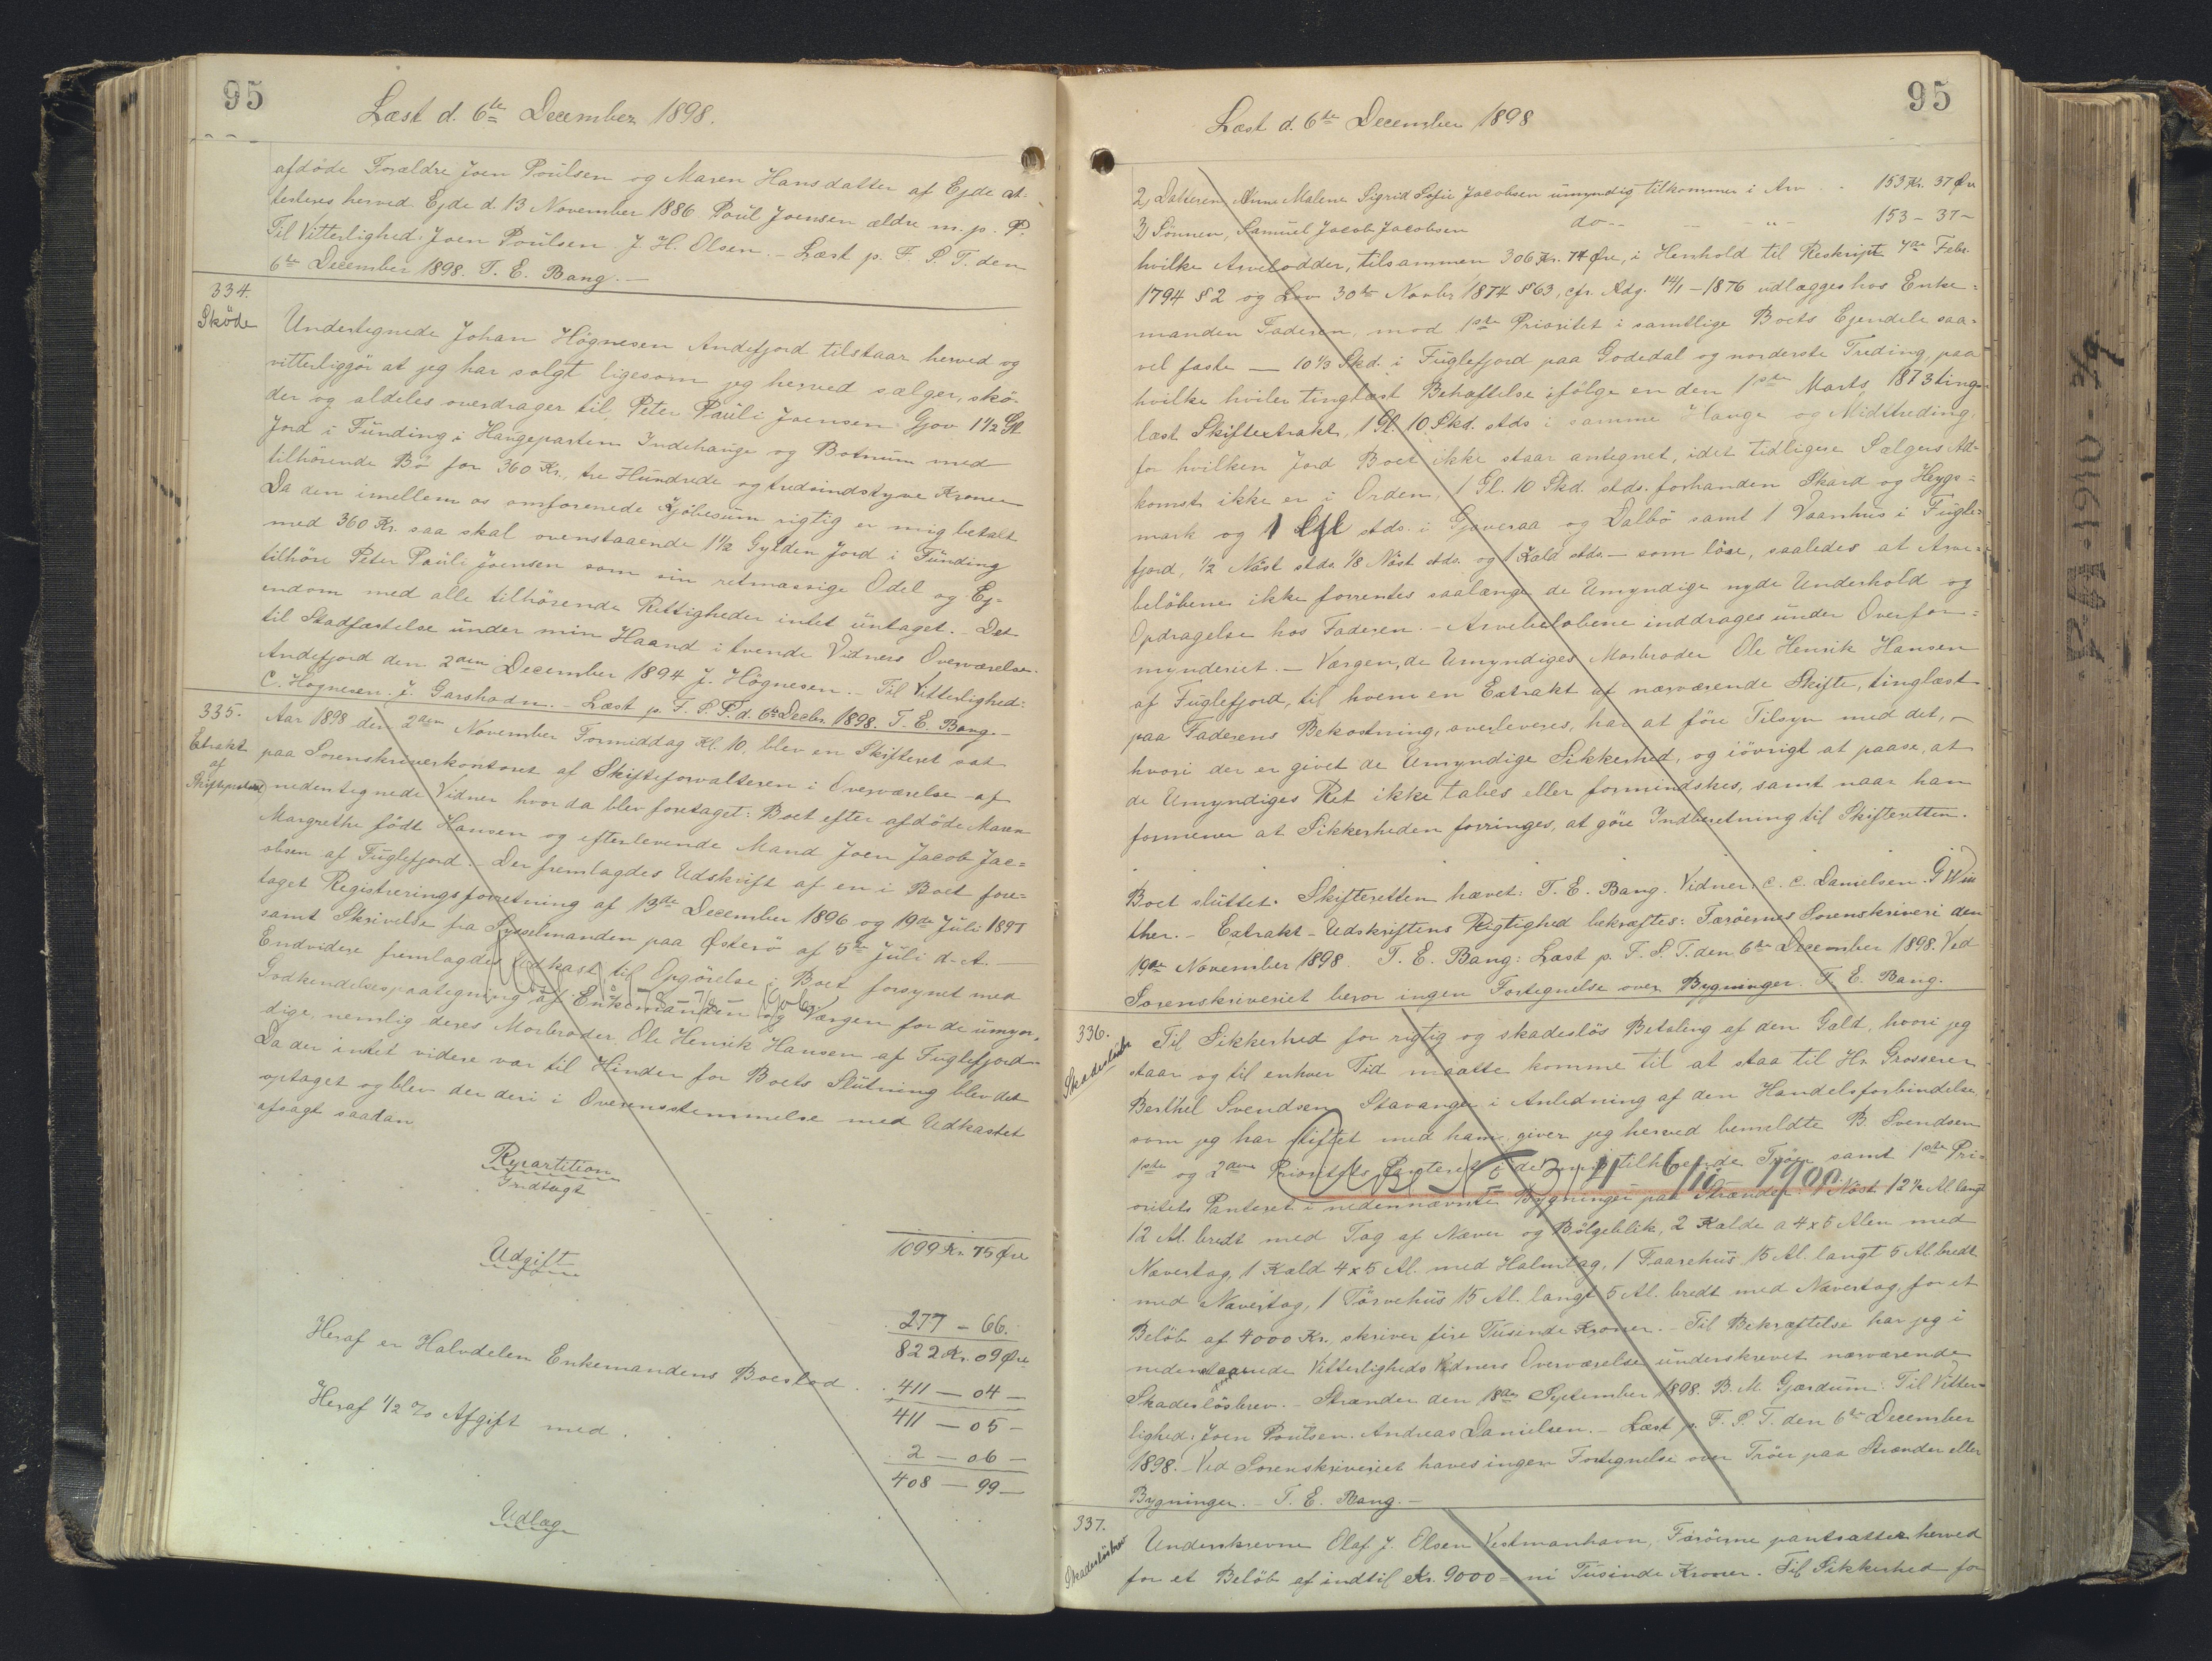 95
Læst d. 6te December 1898.
afdöde Forældre Joen Poulsen og Maren Hansdatter af Ejde at-
testeres herved. Ejde d. 13 November 1886 Poul Joensen ældre m. p. P.
Til Vitterlighed: Joen Poulsen. J. H. Olsen. - Læst p. F. S. T. den
6te December 1898. T. E. Bang. -
334.
Sköde
Undertegnede Johan Högnesen Andefjord tilstaar herved og
vitterliggör at jeg har solgt ligesom jeg herved sælger, skö-
der og aldeles overdrager til Peter Pauli Joensen Gjov 1½ Gl
Jord i Funding i Hangepartem Indehauge og Botnum med
tilhörende Bö for 360 Kr., tre Hundrede og tredsindstyve Kroner
Da den imellem os omforenede Kjöbesum rigtig er mig betalt
med 360 Kr. saa skal ovenstaaende 1½ Gylden Jord i Funding
tilhöre Peter Pauli Joensen som sin retmæssige Odel og Ej-
endom med alle tilhörende Rettigheder intet untaget. - Det
til Stadfæstelse under min Haand i tvende Vidners Overværelse.
Andefjord den 2den December 1894 J. Högnesen. - Til Vitterlighed:
C. Högnesen. J. Garshodn. - Læst p. F. S. T. d. 6te Decbr. 1898. T. E. Bang. -
335.
Extrakt
af
Skifteprotocol
Aar 1898 den 2den November Formiddag Kl. 10, blev en Skifteret sat
paa Sorenskriverkontoret af Skifteforvalteren i Overværelse af
nedentegnede Vidner hvor da blev foretaget: Boet efter afdöde Maren
Margrethe födt Hansen og efterlevende Mand Joen Jacob Jac=
obsen af Fuglefjord. - Der fremlagdes Udskrift af en i Boet fore=
taget Registreringsforretning af 13de December 1896 og 19de Juli 1897
samt Skrivelse fra Sysselmanden paa Österö af 5te Juli d. A. -
Endvidere fremlagdes Udkast til Opgörelse i Boet forsynet med
Godkendelsespaategning af Enkemanden og Værgen for de umyn-
dige, nemlig deres Morbroder, Ole Henrik Hansen af Fuglefjord.
Da der intet videre var til Hinder for Boets Slutning blev det
optaget og blev der deri i Overensstemmelse med Udkastet
afsagt saadan
Repartition
Indtægt
1099 Kr. 75 Öre
Udgift
277 - 66.
822 Kr. 09 Öre
Heraf er Halvdelen Enkemandens Boeslod . 411 - 04 -
411 - 05 -
Heraf ½ % Afgift med . 2 - 06 -
408 - 99 -
Udlæg
95
Læst d. 6te December 1898
2) Datteren Anne Malene Sigrid Sofie Jacobsen umyndig tilkommer i Arv . . 153 Kr. 37 Öre
3) Sönnen, Samuel Jacob Jacobsen do - - - - " - 153 - 37 -
hvilke Arvelodder, tilsammen 306 Kr. 74 Öre, i Henhold til Reskript 7de Febr.
1794 § 2 og Lov 30te Novbr 1874 § 63, cfr. Adg. 14/1 - 1876 udlægges hos Enke=
manden Faderen, mod 1ste Prioritet i samtlige Boets Ejendele saa-
vel faste - 10⅓ Skd. i Fuglefjord paa Godedal og norderste Treding, paa
hvilke hviler tinglæst Behæftelse ifölge en den 1ste Marts 1873 ting-
læst Skifteextrakt, 1 Gl. 10 Skd. stds i samme Hauge og Midttreding,
for hvilken Jord Boet ikke staar antegnet, idet tidligere Sælgers Ad-
komst ikke er i Orden, 1 Gl. 10 Skd. stds. forhanden Skard og Heygs=
mark og 1 Gl stds. i Gjoveraa og Dalbö samt 1 Vaanhus i Fugle-
fjord, ½ Nöst stds. ⅛ Nöst stds. og 1 Kald stds. - som löse, saaledes at Arve-
belöbene ikke forrentes saalænge de Umyndige nyde Underhold og
Opdragelse hos Faderen. - Arvebelöbene inddrages under Overfor=
mynderiet. - Værgen, de Umyndiges Morbroder Ole Henrik Hansen
af Fuglefjord, til hvem en Extrakt af nærværende Skifte, tinglæst
paa Faderens Bekostning, overleveres, har at före Tilsyn med det, -
hvori der er givet de Umyndige Sikkerhed, og iövrigt at paase, at
de Umyndiges Ret ikke tabes eller formindskes, samt naar han
formener at Sikkerheden forringes, at göre Indberetning til Skifteretten.
Boet sluttet. Skifteretten hævet: T. E. Bang. Vidner: C. C. Danielsen. G Win
ther. - Extrakt-Udskriftens Rigtighed bekræftes: Færöernes Sorenskriveri den
19de November 1898. T. E. Bang: Læst p. F. S. T. den 6te December 1898. Ved
Sorenskriveriet beror ingen Fortegnelse over Bygninger. T. E. Bang.
336.
Skadeslösbr
Til Sikkerhed for rigtig og skadeslös Betaling af den Gæld, hvori jeg
staar og til enhver Tid maatte komme til at staa til Hr. Grosserer
Berthel Svendsen Stavanger i Anledning af den Handelsforbindelse,
som jeg har stiftet med ham, giver jeg herved bemeldte B. Svendsen
1ste og 2den Prioritets Panteret i de mig tilhörende Tröer samt 1ste Pri-
oritets Panteret i nedennævnte Bygninger paa Strænder: 1 Nöst 12½ Al langt
12 Al. bredt med Tag af Næver og Bölgeblik, 2 Kælde a 4 x 5 Alen med
Nævertag, 1 Kæld 4 x 5 Al. med Halmtag, 1 Faarehus 15 Al. langt 5 Al. bredt
med Nævertag, 1 Törvehus 15 Al. langt 5 Al. bredt med Nævertag, for et
Belöb af 4000 Kr. skriver fire Tusinde Kroner. - Til Bekræftelse har jeg i
nedenstaaende Vitterligheds Vidners Overværelse underskrevet nærværende
Skadeslösbrev. - Strænder den 18de September 1898. B. M. Gjærdum: Til Vitter-
lighed: Joen Poulsen. Andreas Danielsen. - Læst p. F. S. T. den 6te December
1898. - Ved Sorenskriveriet haves ingen Fortegnelse over Tröer paa Strænder eller
Bygninger. - T. E. Bang. -
337.
Skadeslösbrev
Underskrevne Olaf J. Olsen Vestmanhavn, Færöerne pantsætter herved
for et Belöb af indtil Kr. 9000 = ni Tusinde Kroner. Til Sikkerhed for